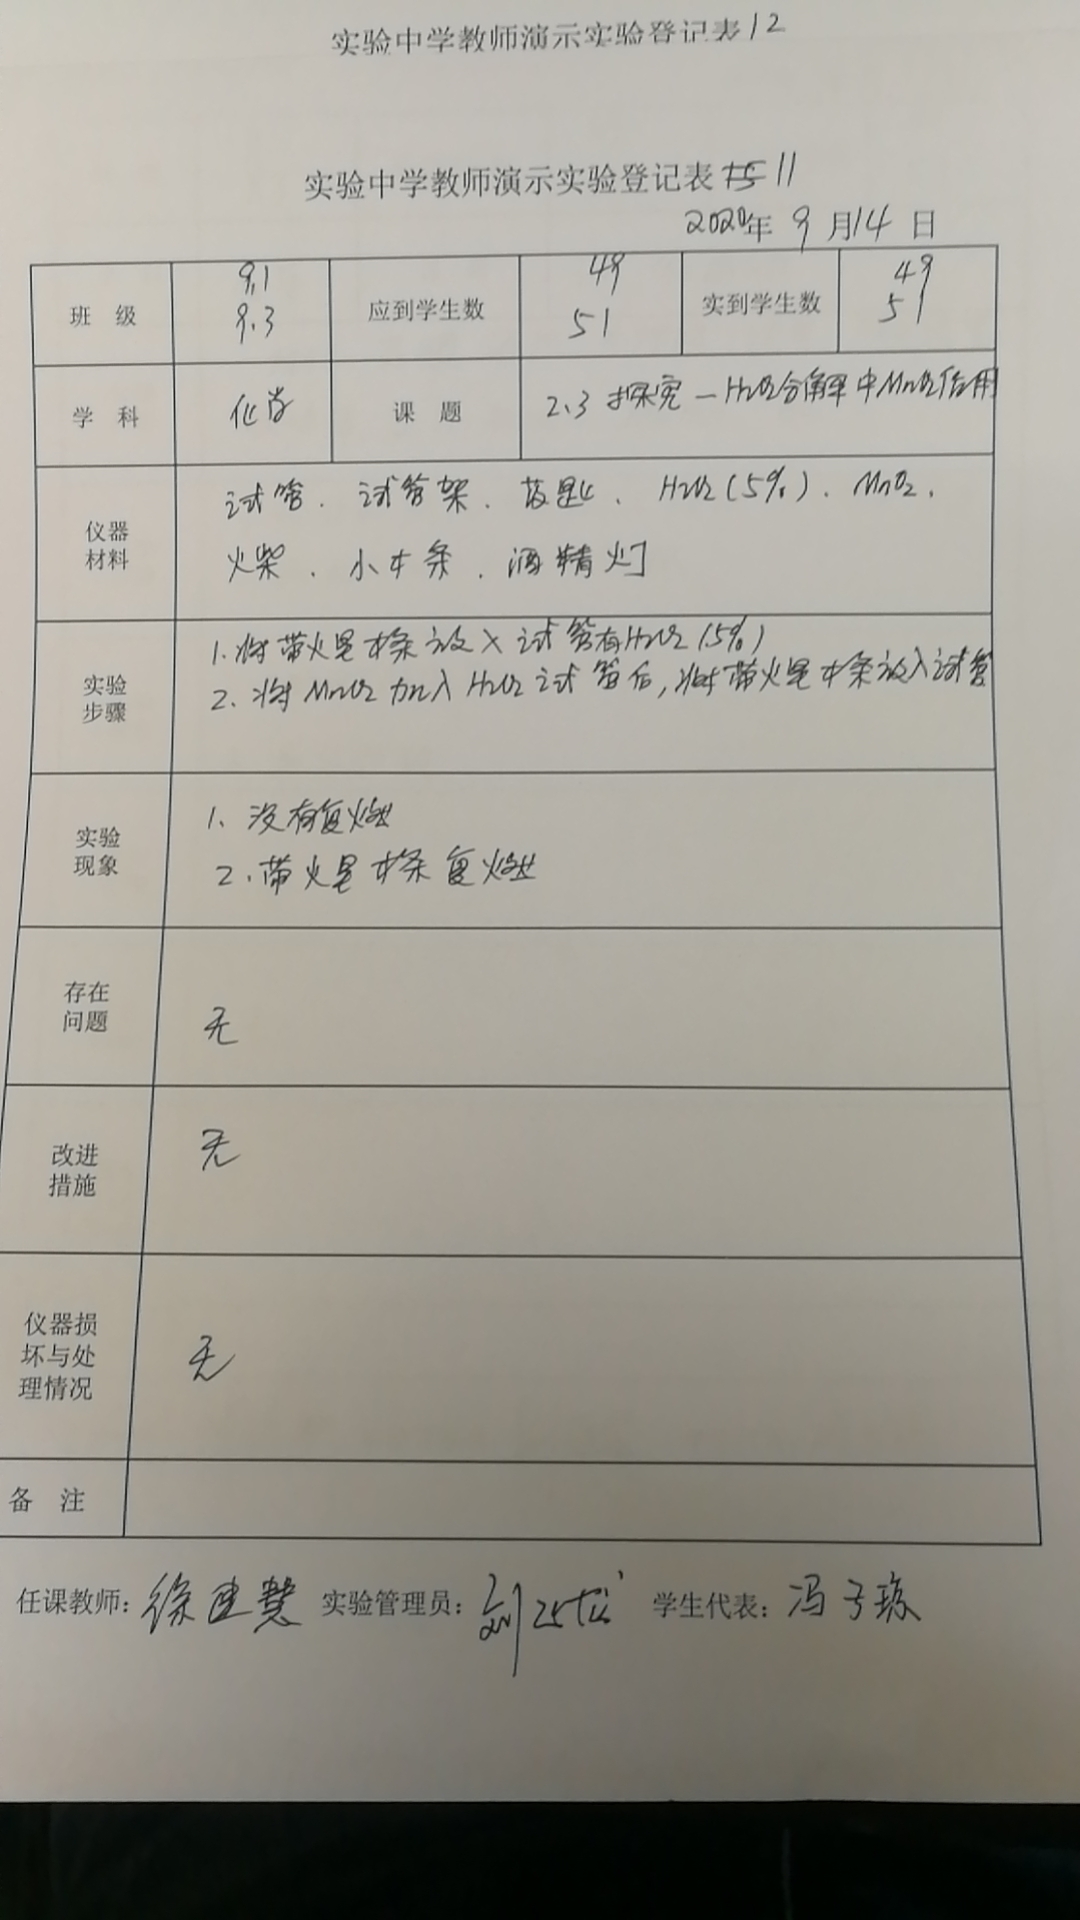 实验中学教师演示实验登记表12
实验中学教师演示实验登记表 11
2020年 9 月14 日
班 级 9.1 9.3 应到学生数 49 51 实到学生数 49 51
学 科 化学 课 题 2.3 探究—H₂O₂分解中MnO₂作用
仪器材料
试管、试管架、药匙、H₂O₂(5%)、MnO₂、
火柴、小木条、酒精灯
实验步骤
1.将带火星木条放入试管有H₂O₂(5%)
2.将MnO₂加入H₂O₂试管后,将带火星木条放入试管
实验现象
1、没有复燃
2.带火星木条复燃
存在问题
无
改进措施
无
仪器损坏与处理情况
无
备 注
任课教师: 徐建慧 实验管理员: 刘 学生代表: 冯子琼